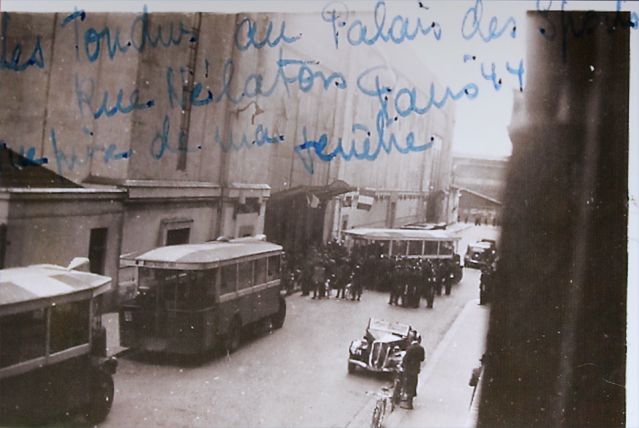 Les Tondus au Palais des Sports
Rue Nélaton Paris "44
vue prise de ma fenêtre